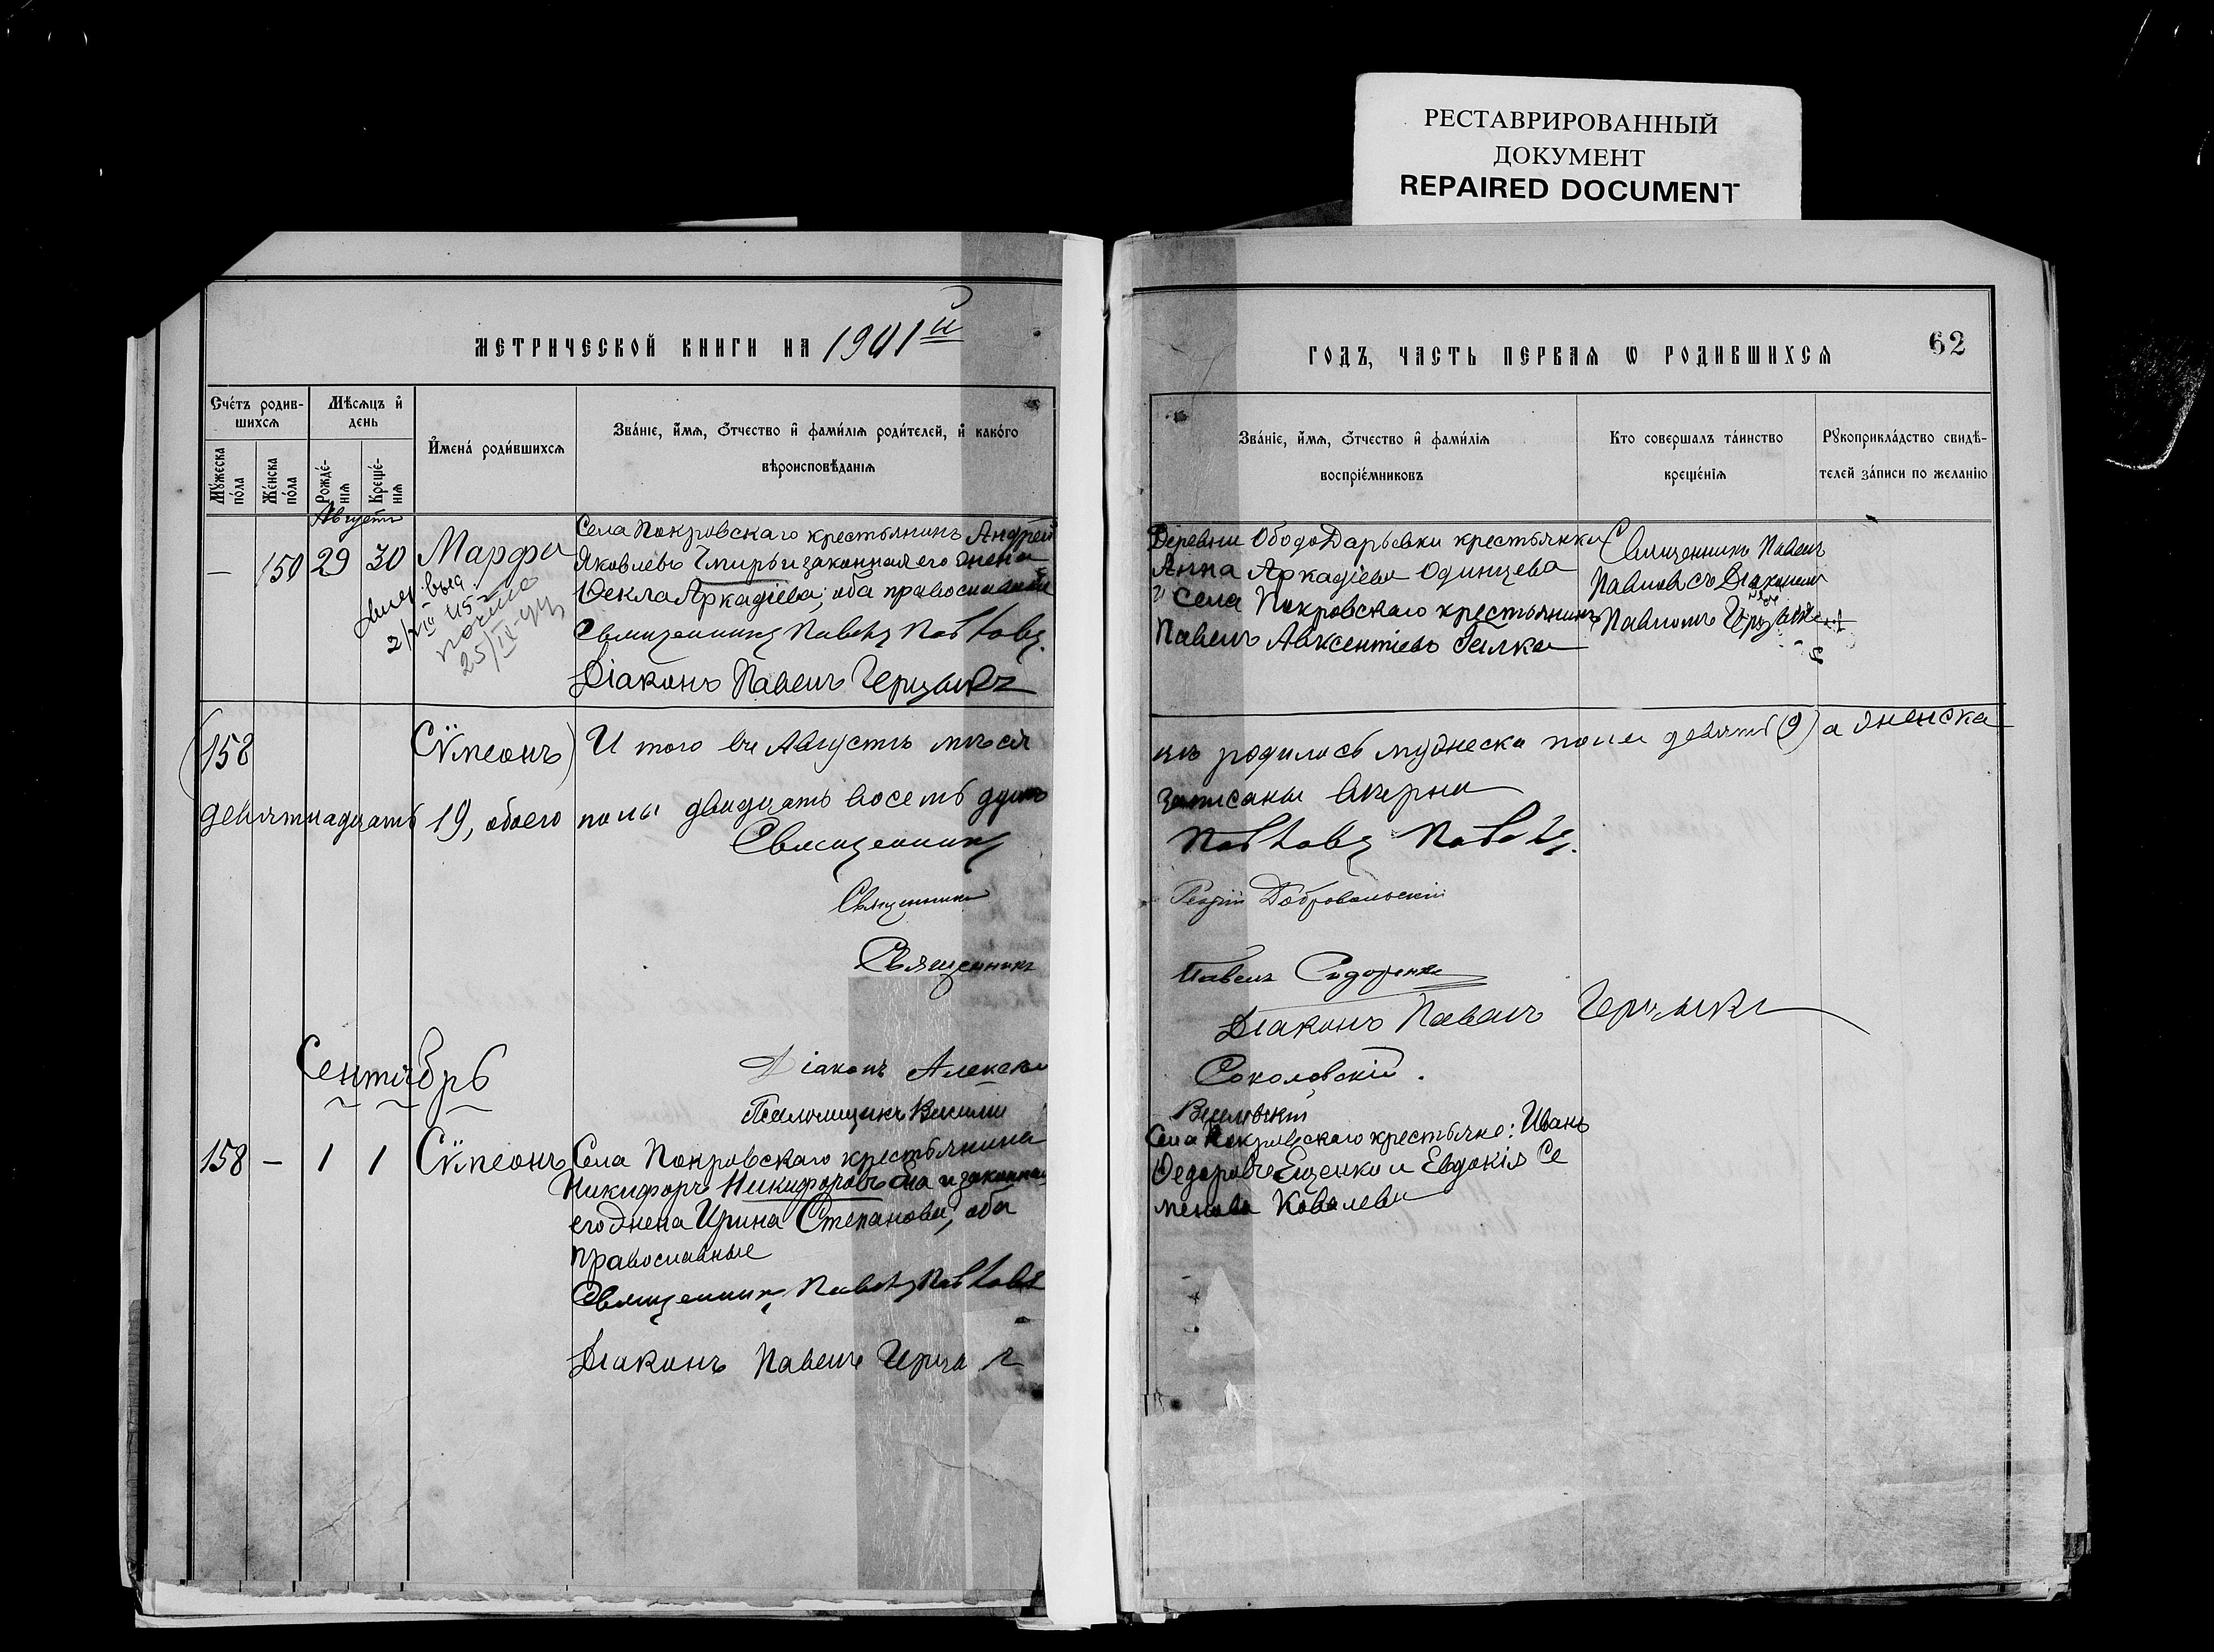 РЕСТАВРИРОВАННЫЙ
ДОКУМЕНТ
REPAIRED DOCUMENT
МЕТРИЧЕСКОЙ КНИГИ НА 1901й
Счéтъ родив-
шихсѧ
Мѣсѧцъ и҆
день
Мꙋ́жеска
по́ла
Же́нска
по́ла
Рожде́-
нїѧ
Креще́-
нїѧ
И҆мена̀ роди́вшихсѧ
Зва́нїе, и҆́мѧ, ѻ҆́тчество и҆ фами́лїѧ роди́телей, и҆ како́гѡ
вѣроисповѣ́данїѧ
Августъ
— 150 29 30 Марфа
Села Покровскаго крестьянинъ Андрей
Яковлевъ Чмиръ и законная его жена
Ѳекла Аркадіева; оба православные
Священникъ Павелъ Павловъ.
Діаконъ Павелъ
выд.
2/VIII 45
25/IX
(158 Сѷмеонъ) И того въ Августѣ мѣся
девятнадцать 19, обоего полы двадцать восемь душъ
Священникъ
Священникъ
Священникъ
Діаконъ Алексѣй
Псаломщикъ Василій
Сентябрь
158 — 1 1 Сѷмеонъ
Села Покровскаго крестьянина
Никифоръ Никифоровъ и законная
его жена Ирина Степанова, оба
православные
Священникъ Павелъ Павловъ
Діаконъ Павелъ
ГОДЪ, ЧАСТЬ ПЕРВАѦ Ѡ РОДИВШИХСѦ
62
Зва́нїе, и҆́мѧ, ѻ҆́тчество и҆ фами́лїѧ
воспрїе́мниковъ
Кто совершалъ та́инство
креще́нїѧ
Рꙋкоприкла́дство свидѣ́-
телей за́писи по жела́нїю
Деревни Ободо Дарьевки крестьянка
Анна Аркадіева Одинцева
и Села Покровскаго крестьянинъ
Павелъ Авксентіевъ
Священникъ Павелъ
Павловъ съ Діакономъ
Павломъ
цѣ родилось мужеска пола девять (9) а женска
записаны вѣрно
Павловъ Павелъ.
Георгій Добровольскій
Павелъ Сидоренко
Діаконъ Павелъ
Соколовскій.
Села Покровскаго крестьяне: Иванъ
Ѳедоровъ Ященко и Евдокія Се
менова Ковалева